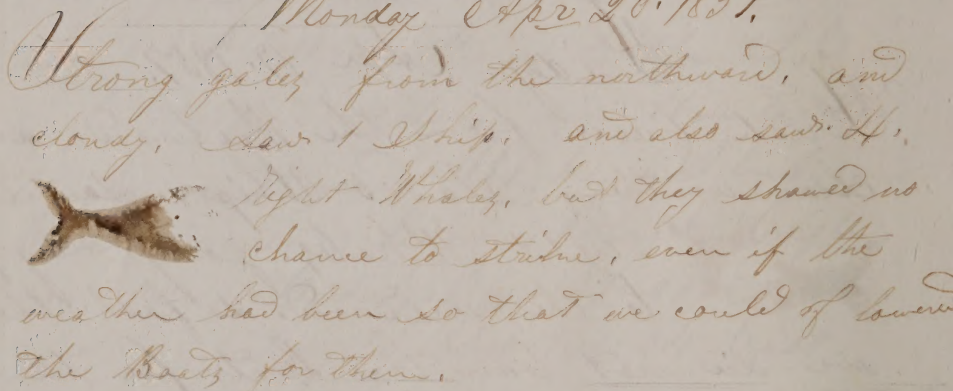 Monday Apr 20. 1857.
Strong gales from the northward, and
cloudy, Saw 1 Ship, and also saw 4,
Right Whales, but they showed no
chance to strike, even if the
weather had been so that we could of lowered
the Boats for them.